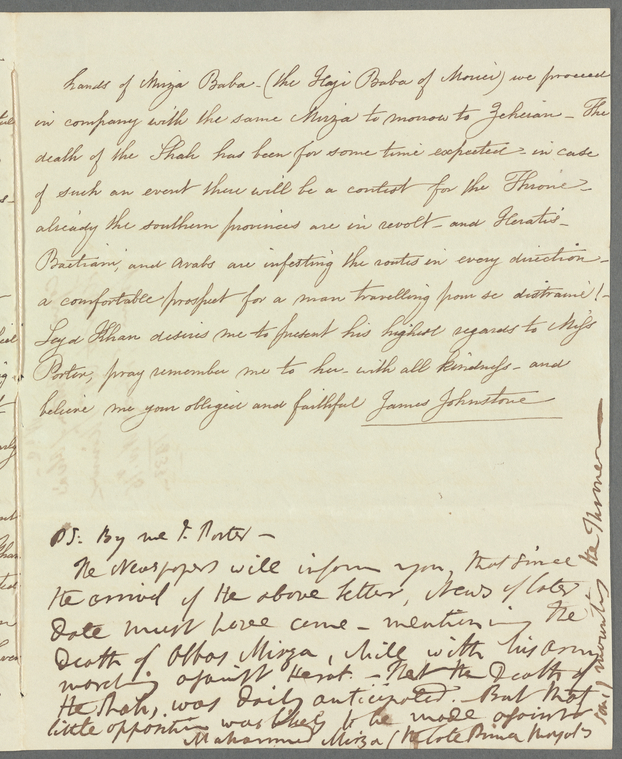 hands of Mirza Baba - (the Haji Baba of Morier) we proceed
in company with the same Mirza to morrow to Teheran - The
death of the Shah has been for some time expected - in case
of such an event there will be a contest for the Throne -
already the southern provinces are in revolt - and
and Arabs are infesting the routes in every direction -
a comfortable prospect for a man travelling pour se distraire! -
Seyd Khan desires me to present his highest regards to Miss
Porter, pray remember me to her - with all kindness - and
believe me your obliged and faithful James Johnstone
PS. By me J. Porter -
The Newspapers will inform you, that since
the arrival of the above letter, News of later
date must have come - mentioning the
Death of Abbas Mirza, while with his army
against Herat. - That the Death of
the Shah, was daily anticipated. - But that
little opposition was likely to be made against
Mahammed Mirza (the late Prince Royal's
son) mounting the Throne -